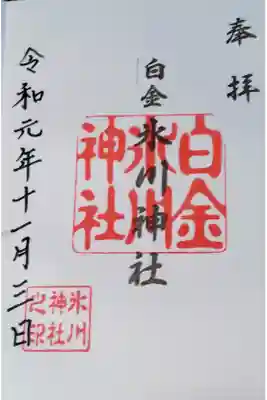 奉拝
白金氷川神社
白金氷川神社
令和元年十一月三日
氷川神社之印